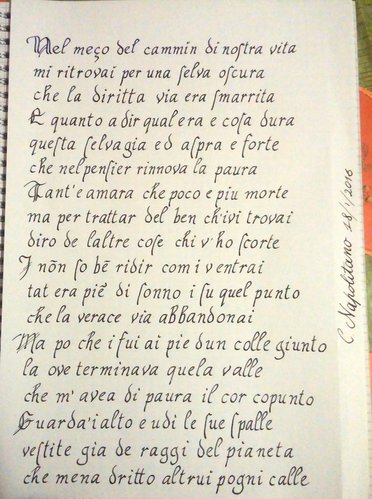 Nel meço del cammin di nostra vita
mi ritrovai per una selva oscura
che la diritta via era smarrita
E quanto a dir qual era e cosa dura
questa selvagia ed aspra e forte
che nel pensier rinnova la paura
Tant'e amara che poco e piu morte
ma per trattar del ben ch'ivi trovai
diro de laltre cose chi v'ho scorte
I nõn so bẽ ridir com i ventrai
tat era pie di sonno i su quel punto
che la verace via abbandonai
Ma po che i fui ai pie dun colle giunto
la ove terminava quela valle
che m'avea di paura il cor copunto
Guarda'i alto e udi le sue spalle
vestite gia de raggi del pianeta
che mena dritto altrui pogni calle
C Napolitano 28/1/2016